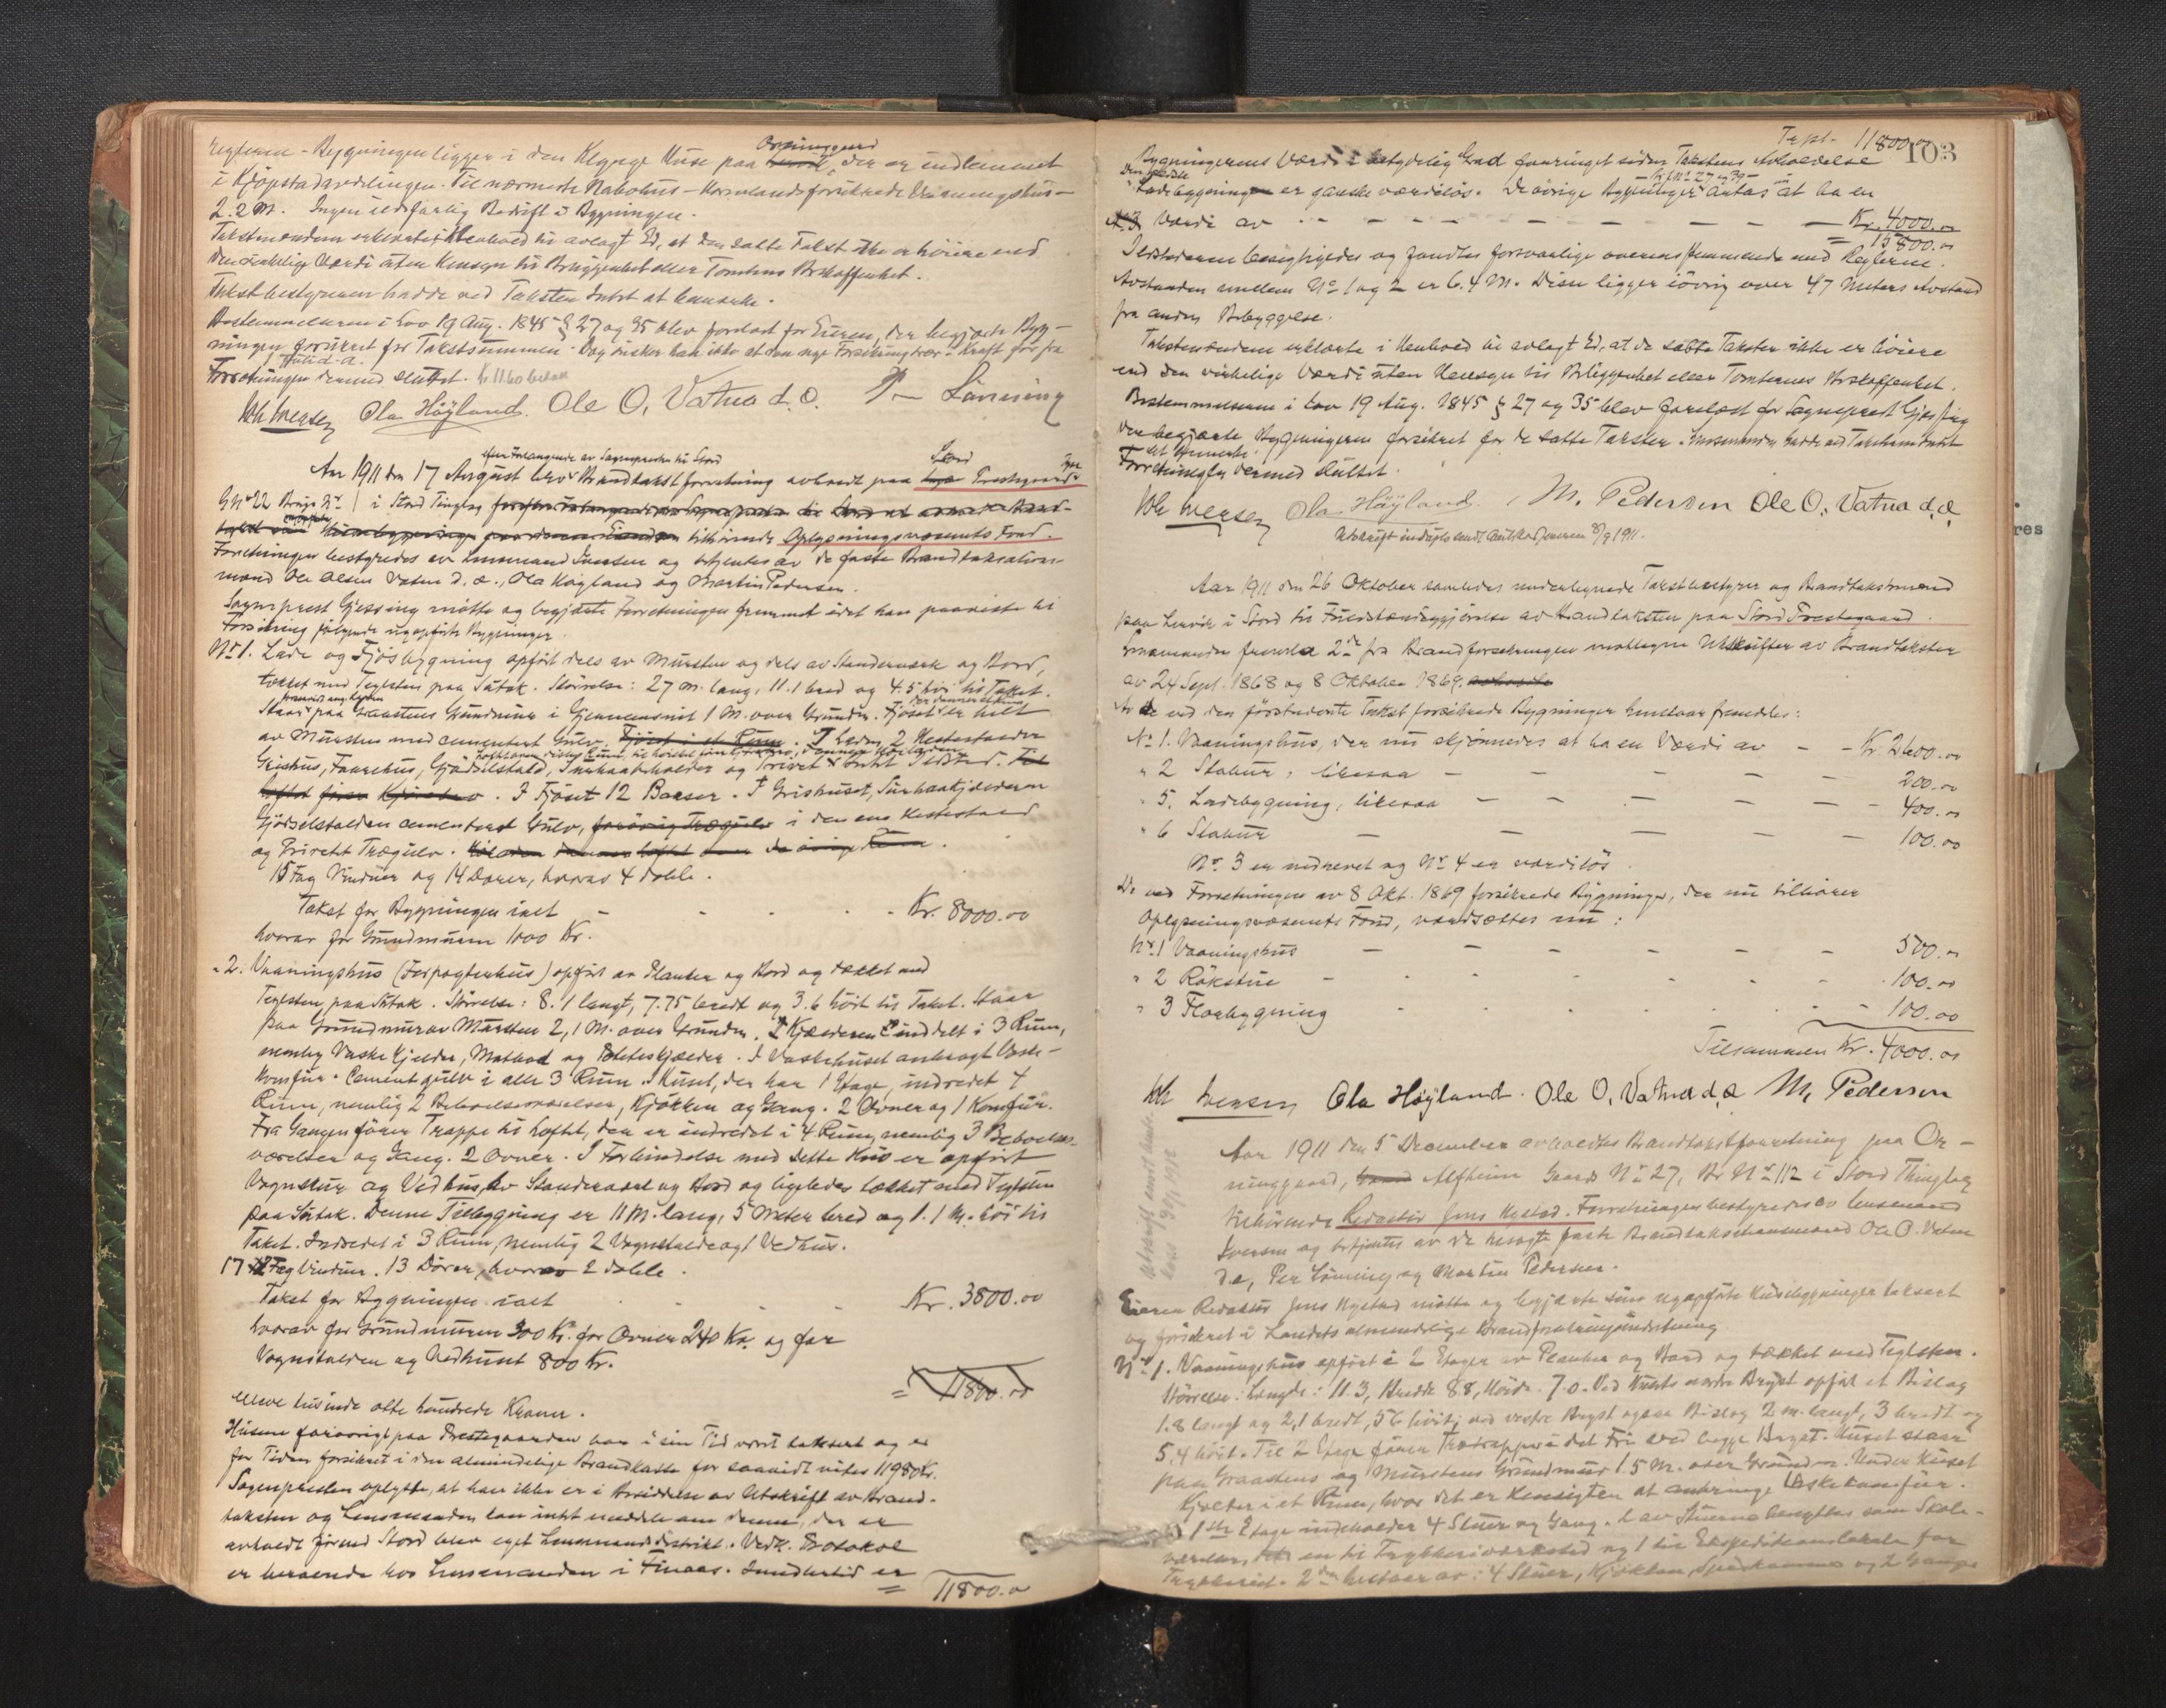 reglerne - Bygningen ligger i den Klynge Huse paa Osvinggaard, der er indlemmet
i Kjøpstadavdelingen. Til nærmeste Nabohus - Vaaningshus -
2.2 M. Ingen ildsfarlig Bedrift i Bygningen.
Takstmændene erklærte i Henhold til avlagt Ed, at den satte Takst ikke er høiere end
den virkelige Værdi uten Hensyn til Beliggenhet eller Tomtens Beskaffenhet.
Takstbestyreren hadde ved Taksten Intet at bemerke.
Bestemmelserne i Lov 19 Aug. 1845 § 27 og 35 blev forelæst for Eieren, der begjærte Byg-
ningen forsikret for Takstsummen. Dog ønsker han ikke at den nye Forsikring træ i Kraft før fra
1 Juli d.a.
Forretningen dermed sluttet. Kr 11.60 betalt
Joh Iversen Ola Høyland. Ole O. Vatna d.æ. P. Lønning
efter Forlangende av Sognepresten til Stord
Aar 1911 den 17 August blev Brandtakstforretning avholdt paa Stord Prestegaard
G No 22 Brugs No 1 i Stord Tinglag
tilhørende Oplysningsvæsenets Fond.
Forretningen bestyredes av Lensmand Iversen og betjentes av de faste Brandtaksations-
mænd Ole Olsen Vatna d.æ., Ola Høyland og Martin Pedersen.
Sogneprest Gjessing møtte og begjærte Forretningen fremmet idet han paaviste til
Forsikring følgende nyopførte Bygninger.
No 1. Lade og Fjøsbygning opført dels av Mursten og dels av Stenderværk og Bord,
tækket med Teglsten paa Sutak. Størrelse: 27 m. lang, 11.1 bred og 4.5 høi til Taket.
Staar paa Graastens Grundmur i Gjennemsnit 1 M. over Grunden. Fjøset er helt
av Mursten med cementert Gulv. I Laden 2 Hestestalder
Grishus, Faarehus, Gjødselstald, Surhaabeholder og Privet
I Fjøset 12 Baaser. I Grishuset, Surhaakjælderen
Gjødselstalden cementert Gulv, i den ene Hestestald
og Privetet Trægulv.
15 Fag Vinduer og 14 Dører, hvorav 4 doble.
Takst for Bygningen ialt - - - - Kr. 8000.00
hvorav for Grundmuren 1000 Kr.
" 2. Vaaningshus (Forpagterhus) opført av Planker og Bord og tækket med
Teglsten paa Sutak. Størrelse: 8.1 langt, 7.75 bredt og 3.6 høit til Taket. Staar
paa Grundmur av Mursten 2,1 M. over Grunden. Kjælderen inddelt i 3 Rum,
nemlig Vaskekjælder, Matbod og Poteteskjælder. I Vaskehuset anbragt Vaske-
komfur. Cementgulv i alle 3 Rum. Huset, der har 1 Etage, indredet 4
Rum, nemlig 2 Beboelsesværelser, Kjøkken og Gang. 2 Ovner og 1 Komfur.
Fra Gangen fører Trappe til Loftet, den er indredet i 4 Rum, nemlig 3 Beboelses-
værelser og Gang. 2 Ovner. I Forbindelse med dette Hus er opført
Vognskur og Vedhus, av Stenderværk og Bord og ligeledes tækket med Teglsten
paa Sutak. Denne Tilbygning er 11 M. lang, 5 Meter bred og 1.1 M. høi til
Taket. Indredet i 3 Rum, nemlig 2 Vognstalde og 1 Vedhus.
17 Fag Vinduer. 13 Dører, hvorav 2 doble.
Takst for Bygningen ialt - - - Kr. 3800.00
hvorav for Grundmuren 300 Kr. for Ovner 240 Kr. og for
Vognstalden og Vedhuset 800 Kr.
= 11800.00
elleve tusinde otte hundrede Kroner.
Husene forøvrigt paa Prestegaarden har i sin Tid været taksert og er
for Tiden forsikret i den almindelige Brandkasse for saavidt vites 11980 Kr.
Sognepresten oplyste, at han ikke er i Besiddelse av Utskrift av Brand-
taksten og Lensmanden kan intet meddele om denne, der er
avholdt førend Stord blev eget Lensmandsdistrikt. Vedk. Protokol
er beroende hos Lensmanden i Finaas. Imidlertid er
= 11800.00
Trpt. 11800.00
103
Bygningernes Værdi i betydelig Grad forringet siden Takstens Avholdelse
Den gamle Ladebygning er ganske værdiløs. De øvrige Bygninger antas at ha en
Værdi av - - - - - - - Kr. 4000.00
= 15800.00
Ildstederne besigtigedes og fandtes forsvarlige overensstemmende med Reglerne.
Avstanden mellem No 1 og 2 er 6.4 M. Disse ligger iøvrig over 47 Meters Avstand
fra anden Bebyggelse.
Takstmændene erklærte i Henhold til avlagt Ed, at de satte Takster ikke er høiere
end den virkelige Værdi uten Hensyn til Beliggenhet eller Tomternes Beskaffenhet.
Bestemmelserne i Lov 19 Aug. 1845 § 27 og 35 blev forelæst for Sogneprest Gjessing
der begjærte Bygningerne forsikret for de satte Takster. Lensmanden hadde ved Taksten Intet
at bemerke.
Forretningen dermed sluttet.
Joh Iversen Ola Høyland. M. Pedersen Ole O. Vatna d.æ.
Utskrift indsendt 8/9 1911.
Aar 1911 den 26 Oktober samledes undertegnede Takstbestyrer og Brandtakstmænd
paa Lervik i Stord til Fuldstændiggjørelse av Brandtaksten paa Stord Prestegaard.
Lensmanden fremla 2de fra Brandforsikringen mottagne Utskrifter av Brandtakster
av 24 Sept. 1868 og 8 Oktober 1869.
Av de ved den førstnævnte Takst forsikrede Bygninger henstaar fremdeles:
No 1. Vaaningshus, der nu skjønnedes at ha en Værdi av - - Kr. 2600.00
" 2 Stabur, likesaa - - - - - 200.00
" 5. Ladebygning, likesaa - - - - - 400.00
" 6 Stabur - - - - - 100.00
No 3 er nedrevet og No 4 er værdiløs.
De ved Forretningen av 8 Okt. 1869 forsikrede Bygninger, der nu tilhører
Oplysningsvæsenets Fond, værdsættes nu:
No 1 Vaaningshus - - - - - 500.00
" 2 Røkstue - - - - - 100.00
" 3 Florbygning - - - - - 100.00
Tilsammen Kr. 4000.00
Joh Iversen Ola Høyland. Ole O. Vatna d.æ M. Pedersen
Aar 1911 den 5 December avholdtes Brandtakstforretning paa Os-
vinggaard, Alfheim Gaards No 27, Br No 112 i Stord Thinglag
tilhørende Redaktør Jens Nystad. Forretningen bestyredes av Lensmand
Iversen og betjentes av de besigte faste Brandtakstmænd Ole O. Vatna
d.æ, Per Lønning og Martin Pedersen.
Eieren Redaktør Jens Nystad møtte og begjærte sine nyopførte Husbygninger taksert
og forsikret i Landets almindelige Brandforsikringsindretning.
No 1. Vaaningshus opført i 2 Etager av Planker og Bord og tækket med Teglsten.
Størrelse: Længde: 11.3, Bredde 8.8, Høide 7.0. Ved Husets nordre Bryst opført et Bislag
1.8 langt og 2,1 bredt, 5.6 høit; ved vestre Bryst ogsaa Bislag 2 m. langt, 3 bredt og
5,4 høit. Til 2 Etage fører Trætrapper i det Fri ved begge Bryst. Huset staar
paa Graastens og Murstens Grundmur 1.5 M. over Grunden. Under Huset
Kjælder i et Rum, hvor det er Hensigten at anbringe Vaskekomfur.
1ste Etage indeholder 4 Stuer og Gang. 1 av Stuerne benyttes som Skole-
værelse, en til Trykkeriværksted og 1 til Ekspeditionslokale for
Trykkeriet. 2den bestaar av: 4 Stuer, Kjøkken, Spiskammer og 2 Gange